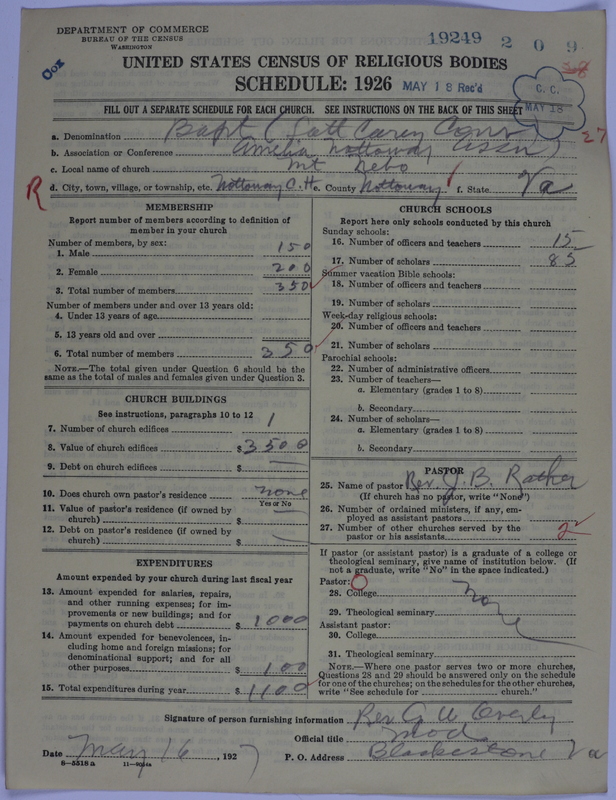 DEPARTMENT OF COMMERCE
BUREAU OF THE CENSUS
WASHINGTON
19249 2 0 9
UNITED STATES CENSUS OF RELIGIOUS BODIES
SCHEDULE: 1926 MAY 18 Rec'd
C. C.
MAY 18
FILL OUT A SEPARATE SCHEDULE FOR EACH CHURCH. SEE INSTRUCTIONS ON THE BACK OF THIS SHEET
a. Denomination Bapt (Lott Carey Conv
27
b. Association or Conference Amelia Nottoway Assn)
c. Local name of church Mt Nebo
R
d. City, town, village, or township, etc. Nottoway C.H. e. County Nottoway f. State Va
MEMBERSHIP
Report number of members according to definition of member in your church
Number of members, by sex:
1. Male 150
2. Female 200
3. Total number of members 350
Number of members under and over 13 years old:
4. Under 13 years of age
5. 13 years old and over
6. Total number of members 350
NOTE.—The total given under Question 6 should be the same as the total of males and females given under Question 3.
CHURCH BUILDINGS
See instructions, paragraphs 10 to 12
7. Number of church edifices 1
8. Value of church edifices $3500
9. Debt on church edifices $ —
10. Does church own pastor's residence none
Yes or No
11. Value of pastor's residence (if owned by church) $ —
12. Debt on pastor's residence (if owned by church) $ —
EXPENDITURES
Amount expended by your church during last fiscal year
13. Amount expended for salaries, repairs, and other running expenses; for improvements or new buildings; and for payments on church debt $1000
14. Amount expended for benevolences, including home and foreign missions; for denominational support; and for all other purposes $100
15. Total expenditures during year $1100
CHURCH SCHOOLS
Report here only schools conducted by this church
Sunday schools:
16. Number of officers and teachers 15
17. Number of scholars 85
Summer vacation Bible schools:
18. Number of officers and teachers
19. Number of scholars
Week-day religious schools:
20. Number of officers and teachers
21. Number of scholars
Parochial schools:
22. Number of administrative officers
23. Number of teachers—
a. Elementary (grades 1 to 8)
b. Secondary
24. Number of scholars—
a. Elementary (grades 1 to 8)
b. Secondary
PASTOR
25. Name of pastor Rev. J. B. Rather
(If church has no pastor, write "None")
26. Number of ordained ministers, if any, employed as assistant pastors
27. Number of other churches served by the pastor or his assistants 2
If pastor (or assistant pastor) is a graduate of a college or theological seminary, give name of institution below. (If not a graduate, write "No" in the space indicated.)
Pastor:
28. College none
29. Theological seminary
Assistant pastor:
30. College
31. Theological seminary
NOTE.—Where one pastor serves two or more churches, Questions 28 and 29 should be answered only on the schedule for one of the churches; on the schedules for the other churches, write "See schedule for church."
Signature of person furnishing information Rev. G W Overly
Official title Mod
Date May 16, 1927 P. O. Address Blackstone Va
8-5518a